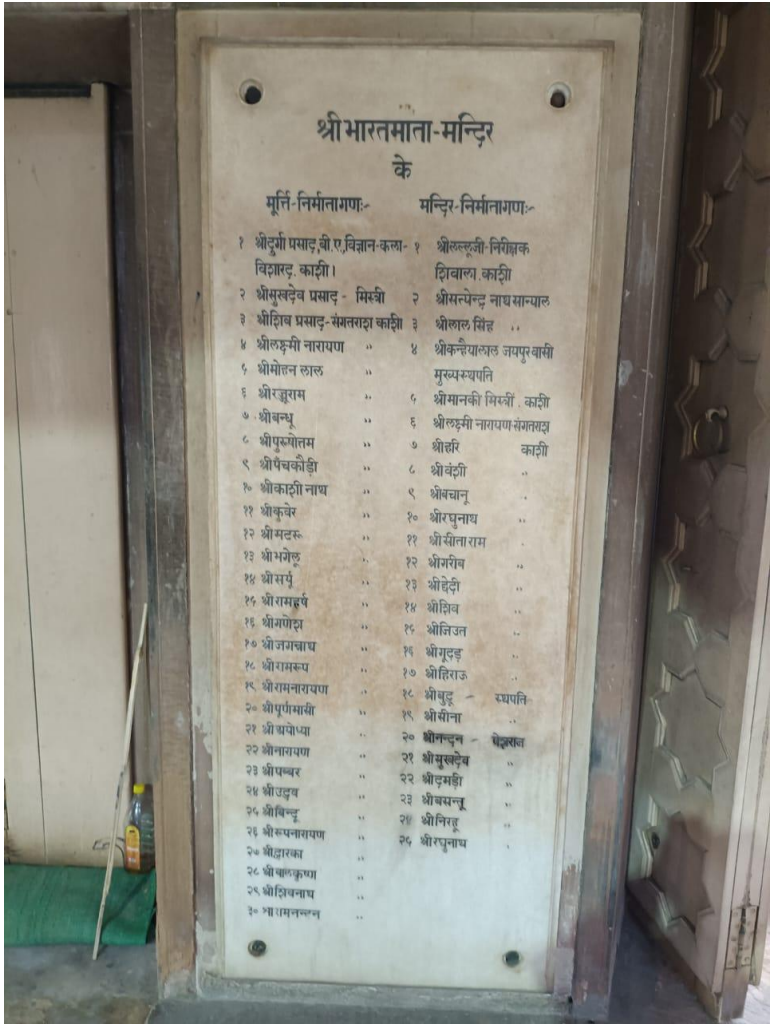 श्रीभारतमाता-मन्दिर
के
मूर्त्ति-निर्मातागणः-
१ श्रीदुर्गा प्रसाद,बी.ए,विज्ञान-कला-
विशारद. काशी।
२ श्रीसुखदेव प्रसाद - मिस्त्री
३ श्रीशिव प्रसाद-संगतराश काशी
४ श्रीलक्ष्मी नारायण "
५ श्रीमोहन लाल "
६ श्रीरज्जूराम "
७ श्रीबन्धू "
८ श्रीपुरुषोत्तम "
९ श्रीपँचकौड़ी "
१० श्रीकाशी नाथ "
११ श्रीकुवेर "
१२ श्रीमटरू "
१३ श्रीभगेलू "
१४ श्रीसर्यू "
१५ श्रीरामहर्ष "
१६ श्रीगणेश "
१७ श्रीजगन्नाथ "
१८ श्रीरामरूप "
१९ श्रीरामनारायण "
२० श्रीपूर्णमासी "
२१ श्रीअयोध्या "
२२ श्रीनारायण "
२३ श्रीपब्बर "
२४ श्रीउद्धव "
२५ श्रीबिन्दू "
२६ श्रीरूपनारायण "
२७ श्रीद्वारका "
२८ श्रीबालकृष्ण "
२९ श्रीशिवनाथ "
३० श्रीरामनन्दन "
मन्दिर-निर्मातागणः-
१ श्रीलल्लूजी-निरीक्षक
शिवाला.काशी
२ श्रीसत्येन्द्र नाथ सान्याल
३ श्रीलाल सिंह "
४ श्रीकन्हैयालाल जयपुरवासी
मुख्यस्थपति
५ श्रीमानकी मिस्त्री. काशी
६ श्रीलक्ष्मी नारायण-संगतराश
७ श्रीहरि काशी
८ श्रीवंशी "
९ श्रीबचानू "
१० श्रीरघुनाथ "
११ श्रीसीताराम "
१२ श्रीगरीब "
१३ श्रीछेदी "
१४ श्रीशिव "
१५ श्रीजिउत "
१६ श्रीगूदड़ "
१७ श्रीहिराऊ "
१८ श्रीबुद्धू - स्थपति
१९ श्रीसीना "
२० श्रीनन्दन -
२१ श्रीसुखदेव "
२२ श्रीदमड़ी "
२३ श्रीबसन्तू "
२४ श्रीनिरहू "
२५ श्रीरघुनाथ "